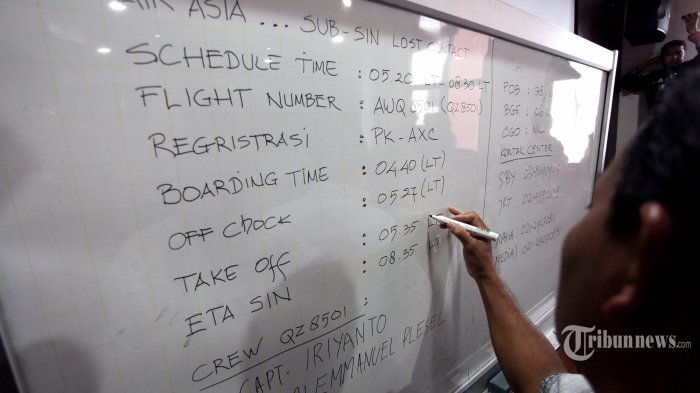 AIR ASIA ... SUB-SIN LOST CONTACT
SCHEDULE TIME : 05.20 LT - 08.30 LT
FLIGHT NUMBER : AWQ 8501 (QZ8501)
REGRISTRASI : PK-AXC
BOARDING TIME : 04.40 (LT)
OFF CHOCK : 05.27 (LT)
TAKE OFF : 05.35 LT
ETA SIN : 08.35 LT
CREW QZ8501 :
CAPT. IRIYANTO
EMMANUEL PLESEL
POB :
BGE :
CGO : NL
KONTAK CENTER
SBY
MEDIA)
Tribunnews.com